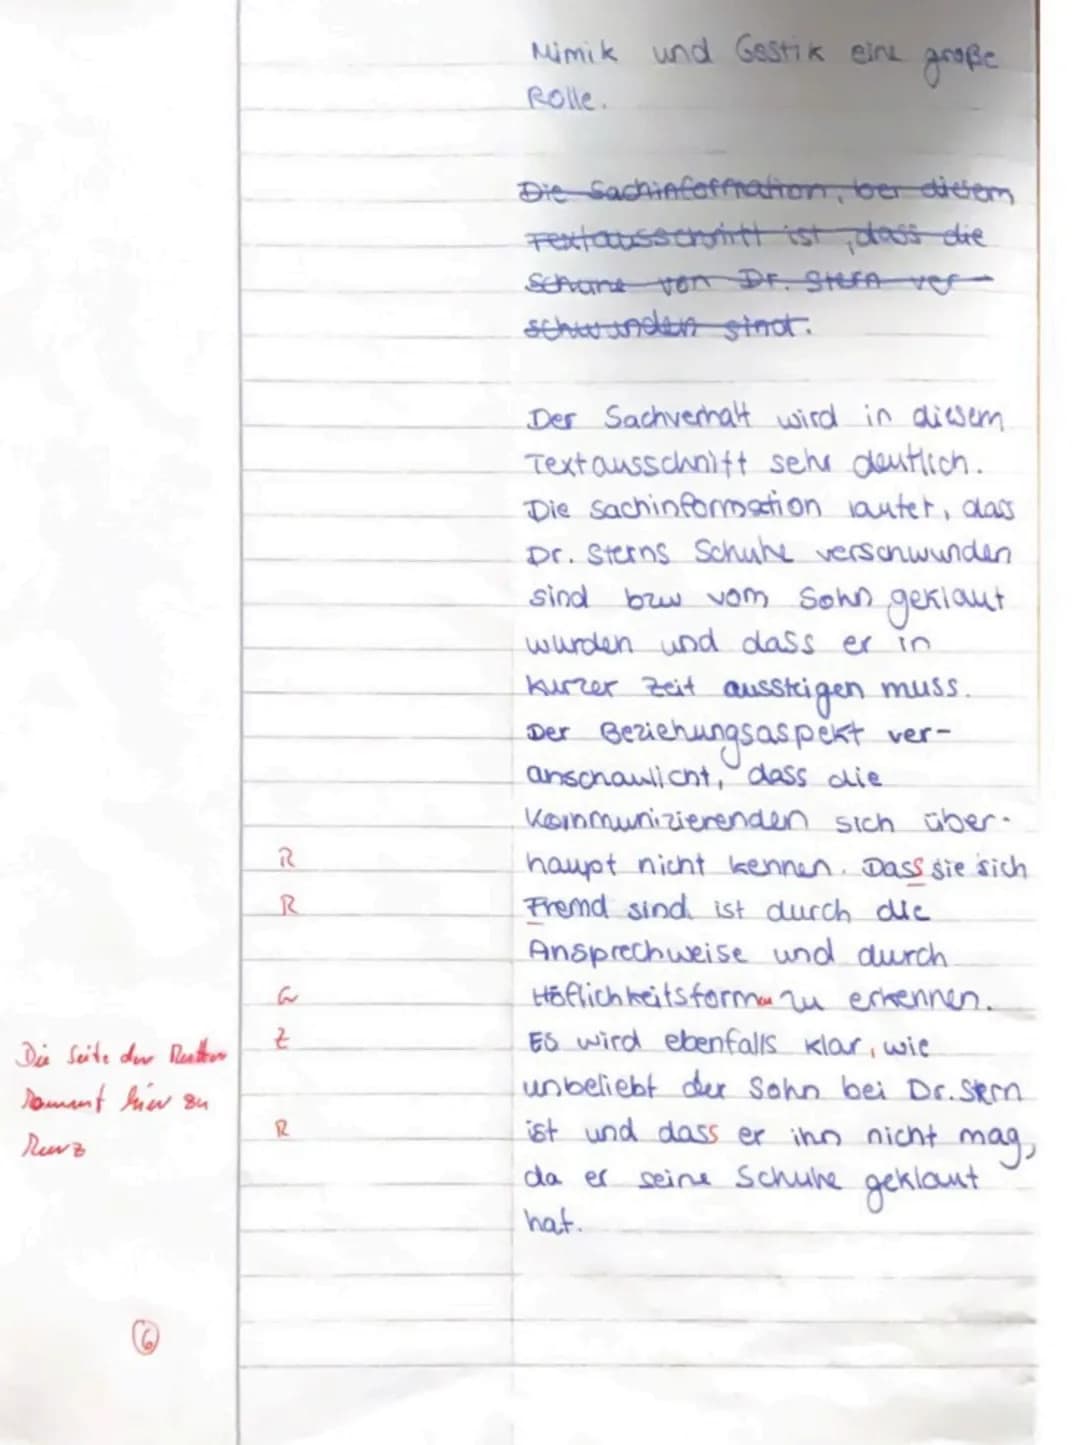 Mimik und Gestik eine große
Rolle.
Die Sachinformation, bei diesem
Textausschnitt ist, dass die
Schuhe von Dr. Stern ver-
schwunden sind.
Der Sachverhalt wird in diesem
Textausschnitt sehr deutlich.
Die Sachinformation lautet, dass
Dr. Sterns Schuhe verschwunden
sind bzw vom Sohn geklaut
wurden und dass er in
kurzer Zeit aussteigen muss.
Der Beziehungsaspekt ver-
anschaulicht, dass die
Kommunizierenden sich über-
R haupt nicht kennen. Dass sie sich
R Fremd sind ist durch die
Ansprechweise und durch
G Höflichkeitsformen zu erkennen.
Z Es wird ebenfalls klar, wie
unbeliebt der Sohn bei Dr. Stern
R ist und dass er ihn nicht mag,
da er seine Schuhe geklaut
hat.
Die Seite der Mutter
kommt hier zu
kurz
6